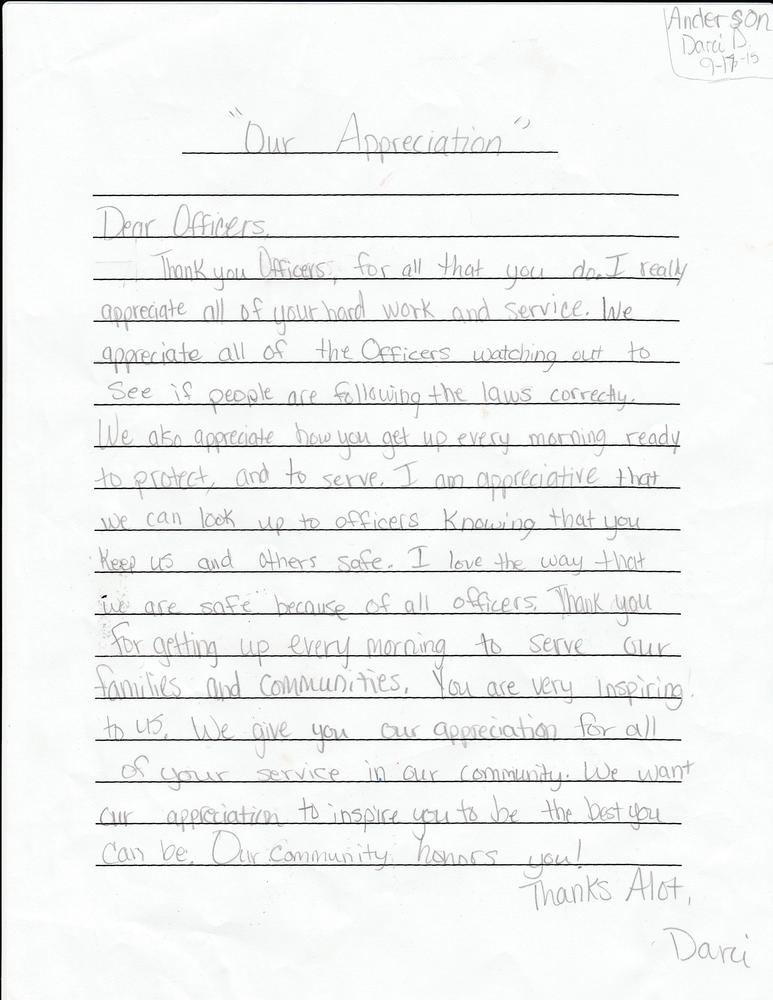 Anderson
Darci D.
9-17-15
"Our Appreciation"
Dear Officers,
Thank you Officers, for all that you do. I really
appreciate all of your hard work and service. We
appreciate all of the Officers watching out to
see if people are following the laws correctly.
We also appreciate how you get up every morning ready
to protect, and to serve. I am appreciative that
we can look up to officers knowing that you
keep us and others safe. I love the way that
we are safe because of all officers. Thank you
for getting up every morning to serve our
families and communities. You are very inspiring
to us. We give you our appreciation for all
of your service in our community. We want
our appreciation to inspire you to be the best you
can be. Our community honors you!
Thanks Alot,
Darci